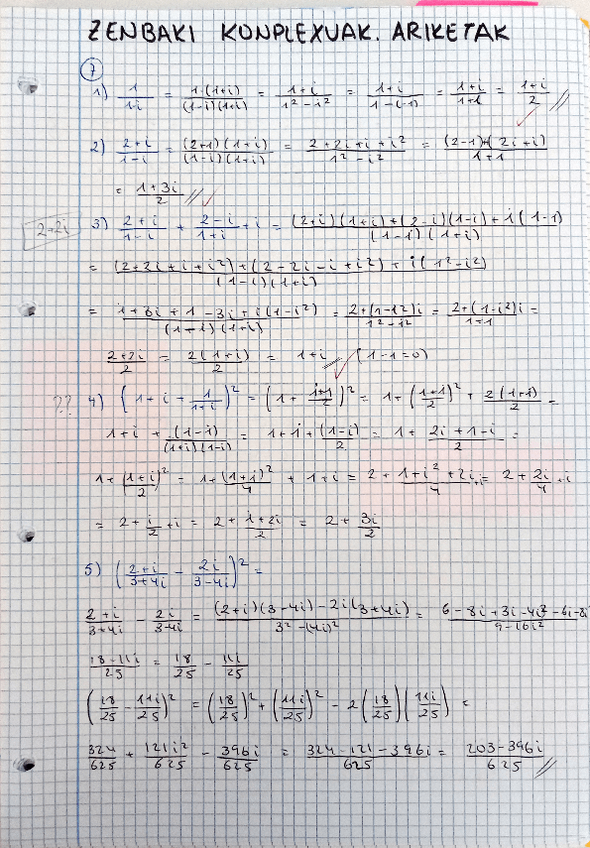 ZENBAKI KONPLEXUAK. ARIKETAK
7
1) 1/(1-i) = 1·(1+i)/((1-i)(1+i)) = (1+i)/(1²-i²) = (1+i)/(1-(-1)) = (1+i)/(1+1) = (1+i)/2 //
2) (2+i)/(1-i) = (2+i)(1+i)/((1-i)(1+i)) = (2+2i+i+i²)/(1²-i²) = (2-1)+(2i+i)/(1+1)
= (1+3i)/2 //
2+2i
3) (2+i)/(1-i) + (2-i)/(1+i) + i = ((2+i)(1+i)+(2-i)(1-i)+i(1-i)/((1-i)(1+i))
= ((2+2i+i+i²)+(2-2i-i+i²)+i(1²-i²))/((1-i)(1+i))
= (1+3i+1-3i+i(1-i²))/((1-i)(1+i)) = (2+(1-i²)i)/(1²-i²) = (2+(1-i²)i)/(1+1) =
(2+2i)/2 = 2(1+i)/2 = 1+i
?? 4) (1+i+1/(1+i))² =
1+i + (1-i)/((1+i)(1-i)) = 1+i+(1-i)/2 = 1+ (2i+1-i)/2 =
1+((1+i)/2)² = 1+(1+i)²/4 + 1+i = 2+(1+i²+2i)/4+i = 2+2i/4+i
= 2+i/2+i = 2+(i+2i)/2 = 2+3i/2
5) ((2+i)/(3+4i) - 2i/(3-4i))² =
(2+i)/(3+4i) - 2i/(3-4i) = ((2+i)(3-4i)-2i(3+4i))/(3²-(4i)²) =
(18-11i)/25 = 18/25 - 11i/25
(18/25 - 11i/25)² = (18/25)² + (11i/25)² - 2(18/25)(11i/25) =
324/625 + 121i²/625 - 396i/625 = (324-121-396i)/625 = (203-396i)/625 //